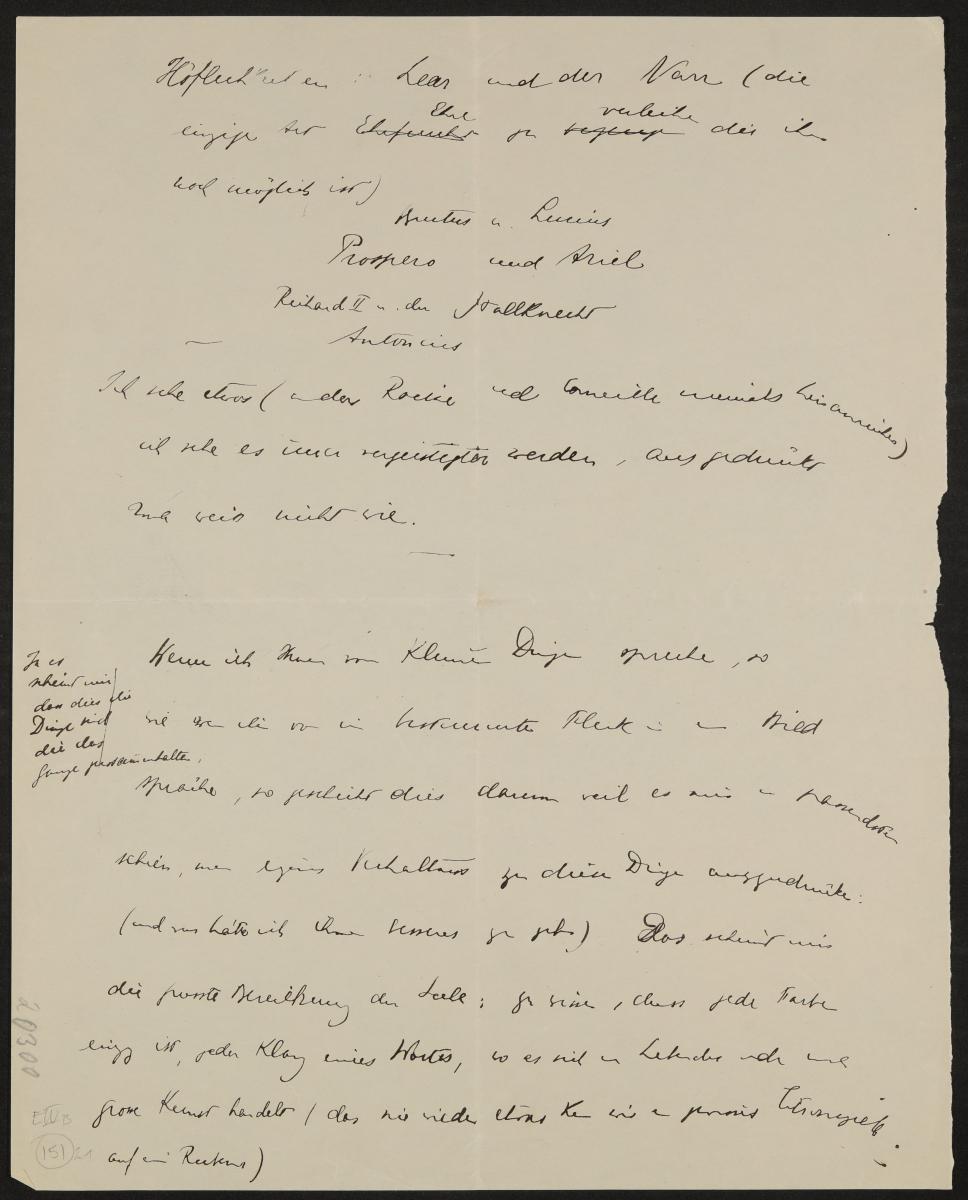 Höflichkeiten: Lear und der Narr (die
einzige Art Ehrfurcht Ehre zu verleihen die ihm
noch möglich ist)
Brutus u. Lucius
Prospero und Ariel
Richard II u. der Stallknecht
Antonius
Ich sehe etwas (an dem Racine und Corneille niemals hinanreichen)
ich sehe es immer vergeistigter werden, ausgedrückt
man weiss nicht wie.
Wenn ich Ihnen von kleinen Dingen spreche, so
wie wenn ich von einem bestimmten Fleck in einem Bild
spräche, so geschieht dies darum weil es mir am passendsten
schien, mein eigenes Verhältniss zu diesen Dingen auszudrücken:
(und was hätte ich Ihnen besseres zu geben) Das scheint mir
die grosse Bereicherung der Seele: zu wissen, dass jede Farbe
einzig ist, jeder Klang eines Wortes, wo es sich um Lebendes oder um
grosse Kunst handelt (das nie wieder etwas
auf ein)
Ja es
scheint mir
dass dies die
Dinge sind
die das
Ganze zusammenhalten.
20300
E IV B
151 21